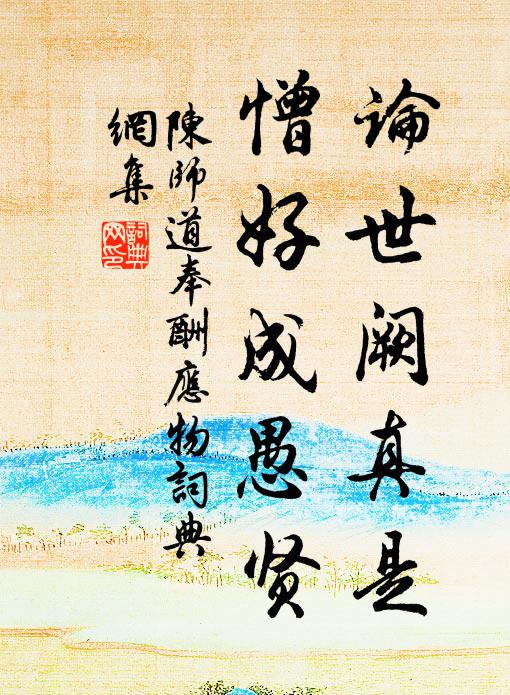 論世阙真是
憎好成愚贤
陳師道奉酬應物詞典
網集
詞典
网印